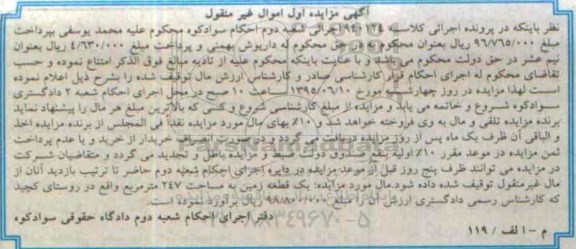 آگهی مزایده اول اموال غیر منقول
نظر باینکه در پرونده اجرائی کلاسه اجرائی شعبه دوم احکام سوادکوه محکوم علیه محمد یوسفی بپرداخت
مبلغ ۹۶/۷۶۵/۰۰۰ ریال بعنوان محکوم به در حق محکوم له داریوش بهمنی و پرداخت مبلغ ۴/۶۳۰/۰۰۰ ریال بعنوان
نیم عشر در حق دولت محکوم می باشد و با عنایت باینکه محکوم علیه از تادیه مبالغ فوق الذکر امتناع نموده و حسب
تقاضای محکوم له اجرای احکام قرار کارشناسی صادر و کارشناس ارزش مال توقیف شده را بشرح ذیل اعلام نموده
است لهذا مزایده در روز چهارشنبه مورخ ۱۳۹۵/۰۶/۱۰ ساعت ۱۰ صبح در محل اجرای احکام شعبه ۲ دادگستری
سوادکوه شروع و خاتمه می یابد و مزایده از مبلغ کارشناسی شروع و کسی که بالاترین مبلغ هر مال را پیشنهاد نماید
برنده مزایده تلقی و مال به وی فروخته خواهد شد و ۱۰٪ بهای مال مورد مزایده نقداً فی المجلس از برنده مزایده اخذ
و الباقی آن ظرف یک ماه پس از روز مزایده دریافت می گردد و در صورت انصراف خریدار از خرید و یا عدم پرداخت
ثمن مزایده در موعد مقرر ۱۰٪ اولیه بنفع صندوق دولت ضبط و مزایده باطل و تجدید می گردد و متقاضیان شرکت
در مزایده می توانند ظرف پنج روز قبل از موعد مزایده در دایره اجرای احکام شعبه دوم حاضر تا ترتیب بازدید آنان از
مال غیرمنقول توقیف شده داده شود. مال مورد مزایده: یک قطعه زمین به مساحت ۲۴۷ مترمربع واقع در روستای کچید
که کارشناس رسمی دادگستری ارزش آن را مبلغ ۹۸/۸۰۰/۰۰۰ ریال برآورد نموده است.
دفتر اجرای احکام شعبه دوم دادگاه حقوقی سوادکوه
م - الف / ۱۱۹
۰۲۱-۸۸۳۴۹۶۷۰-۵